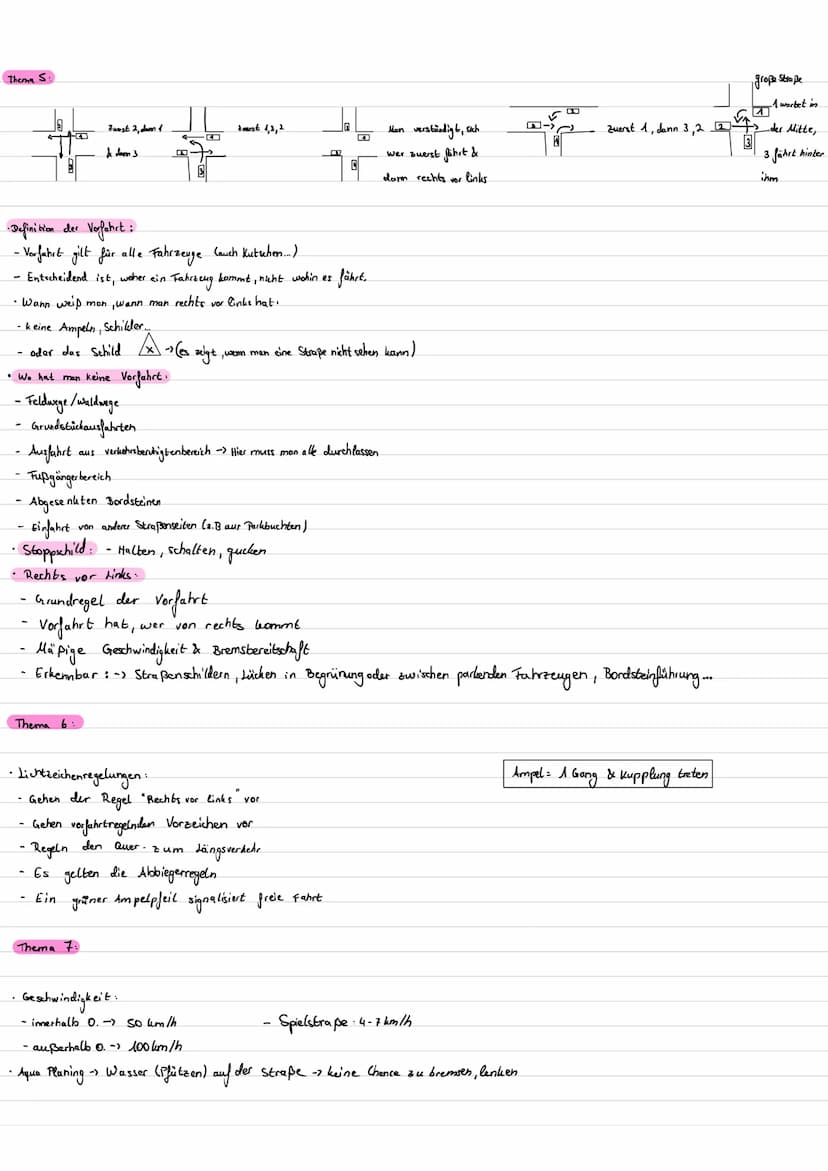 Thema 5:
große Straße
zuerst 2, dann 1
& dann 3
zuerst 1, 3, 2
Man verständigt, sich
wer zuerst fährt &
dann rechts vor links
zuerst 1, dann 3, 2
1 wartet in
der Mitte,
3 fährt hinter
ihm
· Definition der Vorfahrt:
- Vorfahrt gilt für alle Fahrzeuge (auch Kutschen...)
- Entscheidend ist, woher ein Fahrzeug kommt, nicht wohin es fährt.
· Wann weiß man, wann man rechts vor links hat:
- keine Ampeln, Schilder...
- oder das Schild X -> (es zeigt, wenn man eine Straße nicht sehen kann)
· Wo hat man keine Vorfahrt:
- Feldwege/Waldwege
- Grundstückausfahrten
- Ausfahrt aus -> Hier muss man alle durchlassen
- Fußgängerbereich
- Abgesenkten Bordsteinen
- Einfahrt von anderen Straßenseiten (z.B aus Parkbuchten)
· Stoppschild: - Halten, schalten, gucken
· Rechts vor Links:
- Grundregel der Vorfahrt
- Vorfahrt hat, wer von rechts kommt
- Mäßige Geschwindigkeit & Bremsbereitschaft
- Erkennbar: -> Straßenschildern, Lücken in Begrünung oder zwischen parkenden Fahrzeugen, Bordsteinführung...
Thema 6:
· Lichtzeichenregelungen:
Ampel = 1 Gang & Kupplung treten
- Gehen der Regel "Rechts vor Links" vor
- Gehen vorfahrtregelnden Vorzeichen vor
- Regeln den Quer- zum Längsverkehr
- Es gelten die Abbiegerregeln
- Ein grüner Ampelpfeil signalisiert freie Fahrt
Thema 7:
· Geschwindigkeit:
- innerhalb O. -> 50 km/h - Spielstraße: 4-7 km/h
- außerhalb O. -> 100 km/h
· Aqua Planing -> Wasser (Pfützen) auf der Straße -> keine Chance zu bremsen, lenken